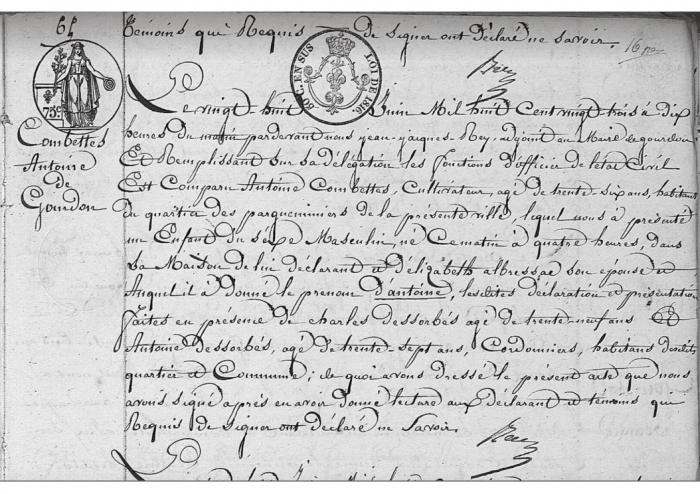 témoins qui Requis de signer ont déclaré ne savoir.
Rey
64
75c.
80 C. EN SUS LOI DE 1816.
Combettes
Antoine
de
Gourdon
Le vingt huit Juin Mil huit Cent vingt trois à dix
heures du matin pardevant nous jean-jaques Rey, adjoint au Maire de gourdon
Et Remplissant sur sa délégation les fonctions d'officier de l'état Civil
Est Comparu Antoine Combettes, Cultivateur, agé de trente-six ans, habitant
du quartier des pargueminiers de la présente ville, lequel nous à présenté
un Enfant du sexe Masculin, né Cematin à quatre heures, dans
sa Maison de lui déclarant et d'élizabeth albressac son épouse et
Auquel il à donné le prenom d'antoine, lesdites déclaration et présentation
faites en présence de charles dessorbés agé de trente-neuf ans et
Antoine dessorbés, agé de trente-sept ans, Cordonniers, habitans desdits
quartier et Commune; de quoi avons dressé le présent acte que nous
avons signé aprés en avoir donné lecture aux déclarant et témoins qui
Requis de signer ont déclaré ne Savoir.
Rey